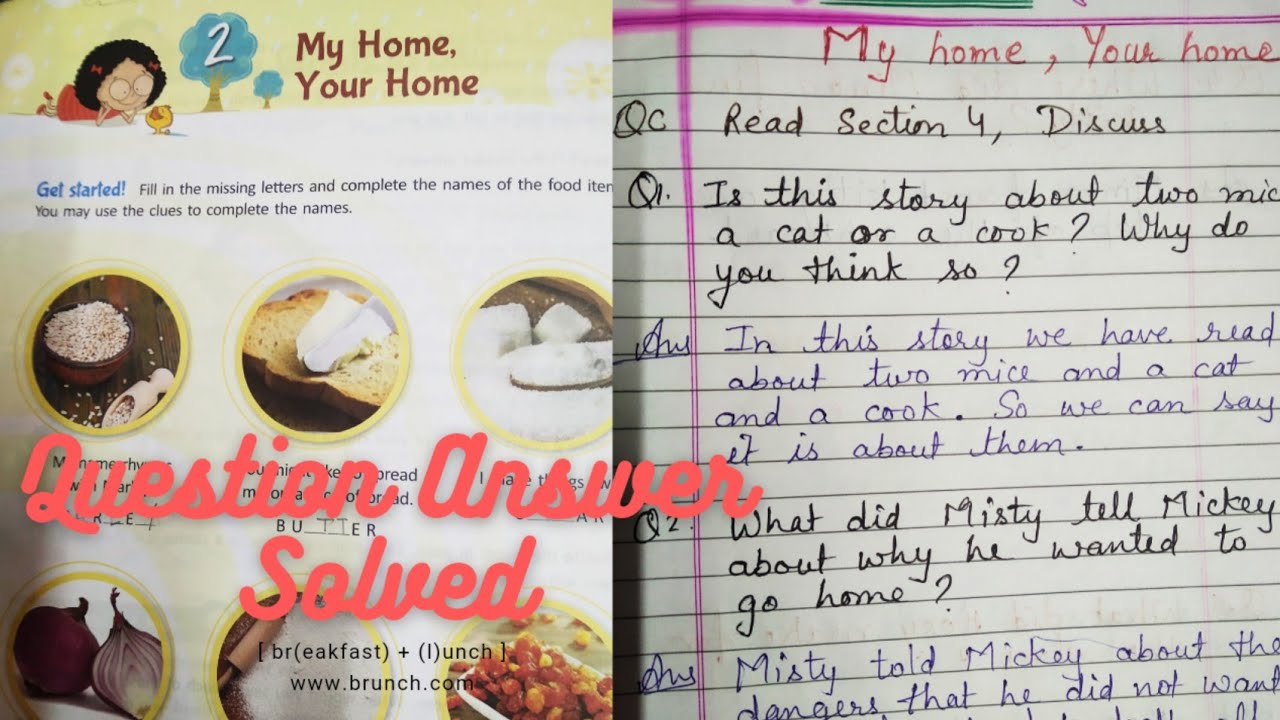 2
My Home,
Your Home
Get started! Fill in the missing letters and complete the names of the food
You may use the clues to complete the names.
spread
of bread.
I
BUTTER
Question Answer
Solved
[ br(eakfast) + (l)unch ]
www.brunch.com
My home, Your home
QC Read Section 4, Discuss
Q1. Is this story about two
a cat or a cook? Why do
you think so?
Ans In this story we have read
about two mice and a cat
and a cook. So we can say
it is about them.
Q2 What did Misty tell Mickey
about why he wanted to
go home?
Ans Misty told Mickey about the
dangers that he did not want